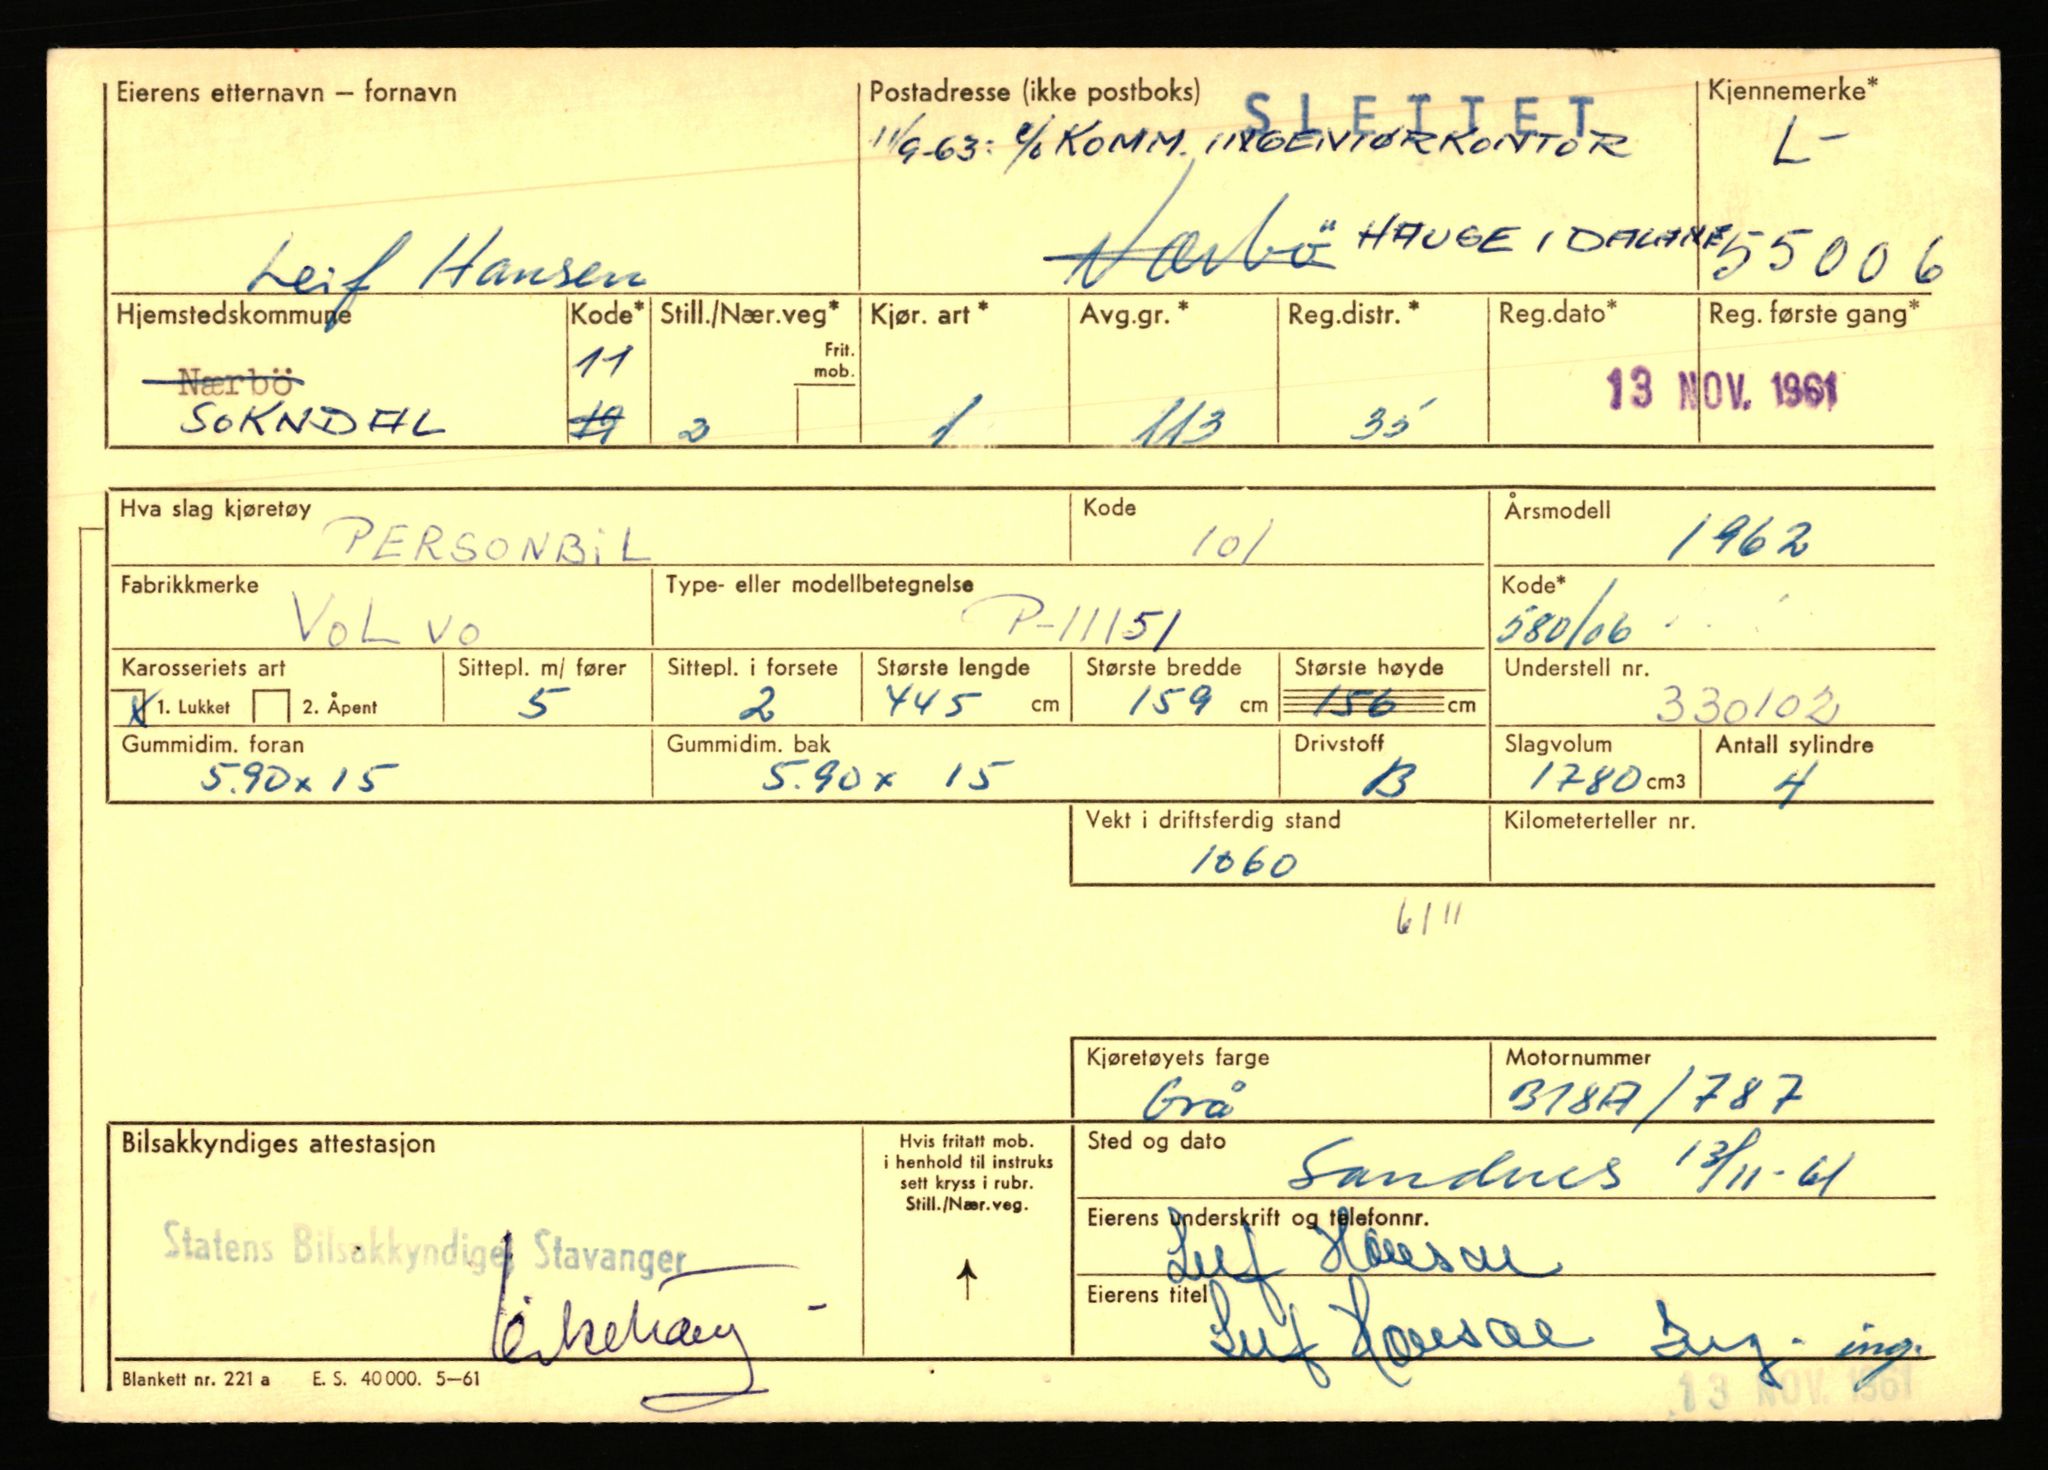 Eierens etternavn – fornavn
Leif Hansen
Postadresse (ikke postboks)
SLETTET
11/9-63: c/o KOMM. INGENIØRKONTOR
Nærbö HAUGE I DALANE
Kjennemerke*
L-
55006
Hjemstedskommune
Nærbö
SOKNDAL
Kode*
11
19
Still./Nær.veg*
Frit. mob.
2
Kjør. art *
1
Avg.gr. *
113
Reg.distr. *
35
Reg.dato*
Reg. første gang*
13 NOV. 1961
Hva slag kjøretøy
PERSONBIL
Kode
101
Årsmodell
1962
Fabrikkmerke
VOLVO
Type- eller modellbetegnelse
P-11151
Kode*
580/06
Karosseriets art
X 1. Lukket 2. Åpent
Sittepl. m/ fører
5
Sittepl. i forsete
2
Største lengde
445 cm
Største bredde
159 cm
Største høyde
156 cm
Understell nr.
330102
Gummidim. foran
5.90x15
Gummidim. bak
5.90x 15
Drivstoff
B
Slagvolum
1780 cm3
Antall sylindre
4
Vekt i driftsferdig stand
1060
Kilometerteller nr.
6/11
Kjøretøyets farge
Grå
Motornummer
B18A/787
Bilsakkyndiges attestasjon
Statens Bilsakkyndige, Stavanger
Hvis fritatt mob.
i henhold til instruks
sett kryss i rubr.
Still./Nær.veg.
Sted og dato
Sandnes 13/11-61
Eierens underskrift og telefonnr.
Leif Hansen
Eierens titel
Leif Hansen Ing. ing.
13 NOV. 1961
Blankett nr. 221 a E. S. 40 000. 5–61